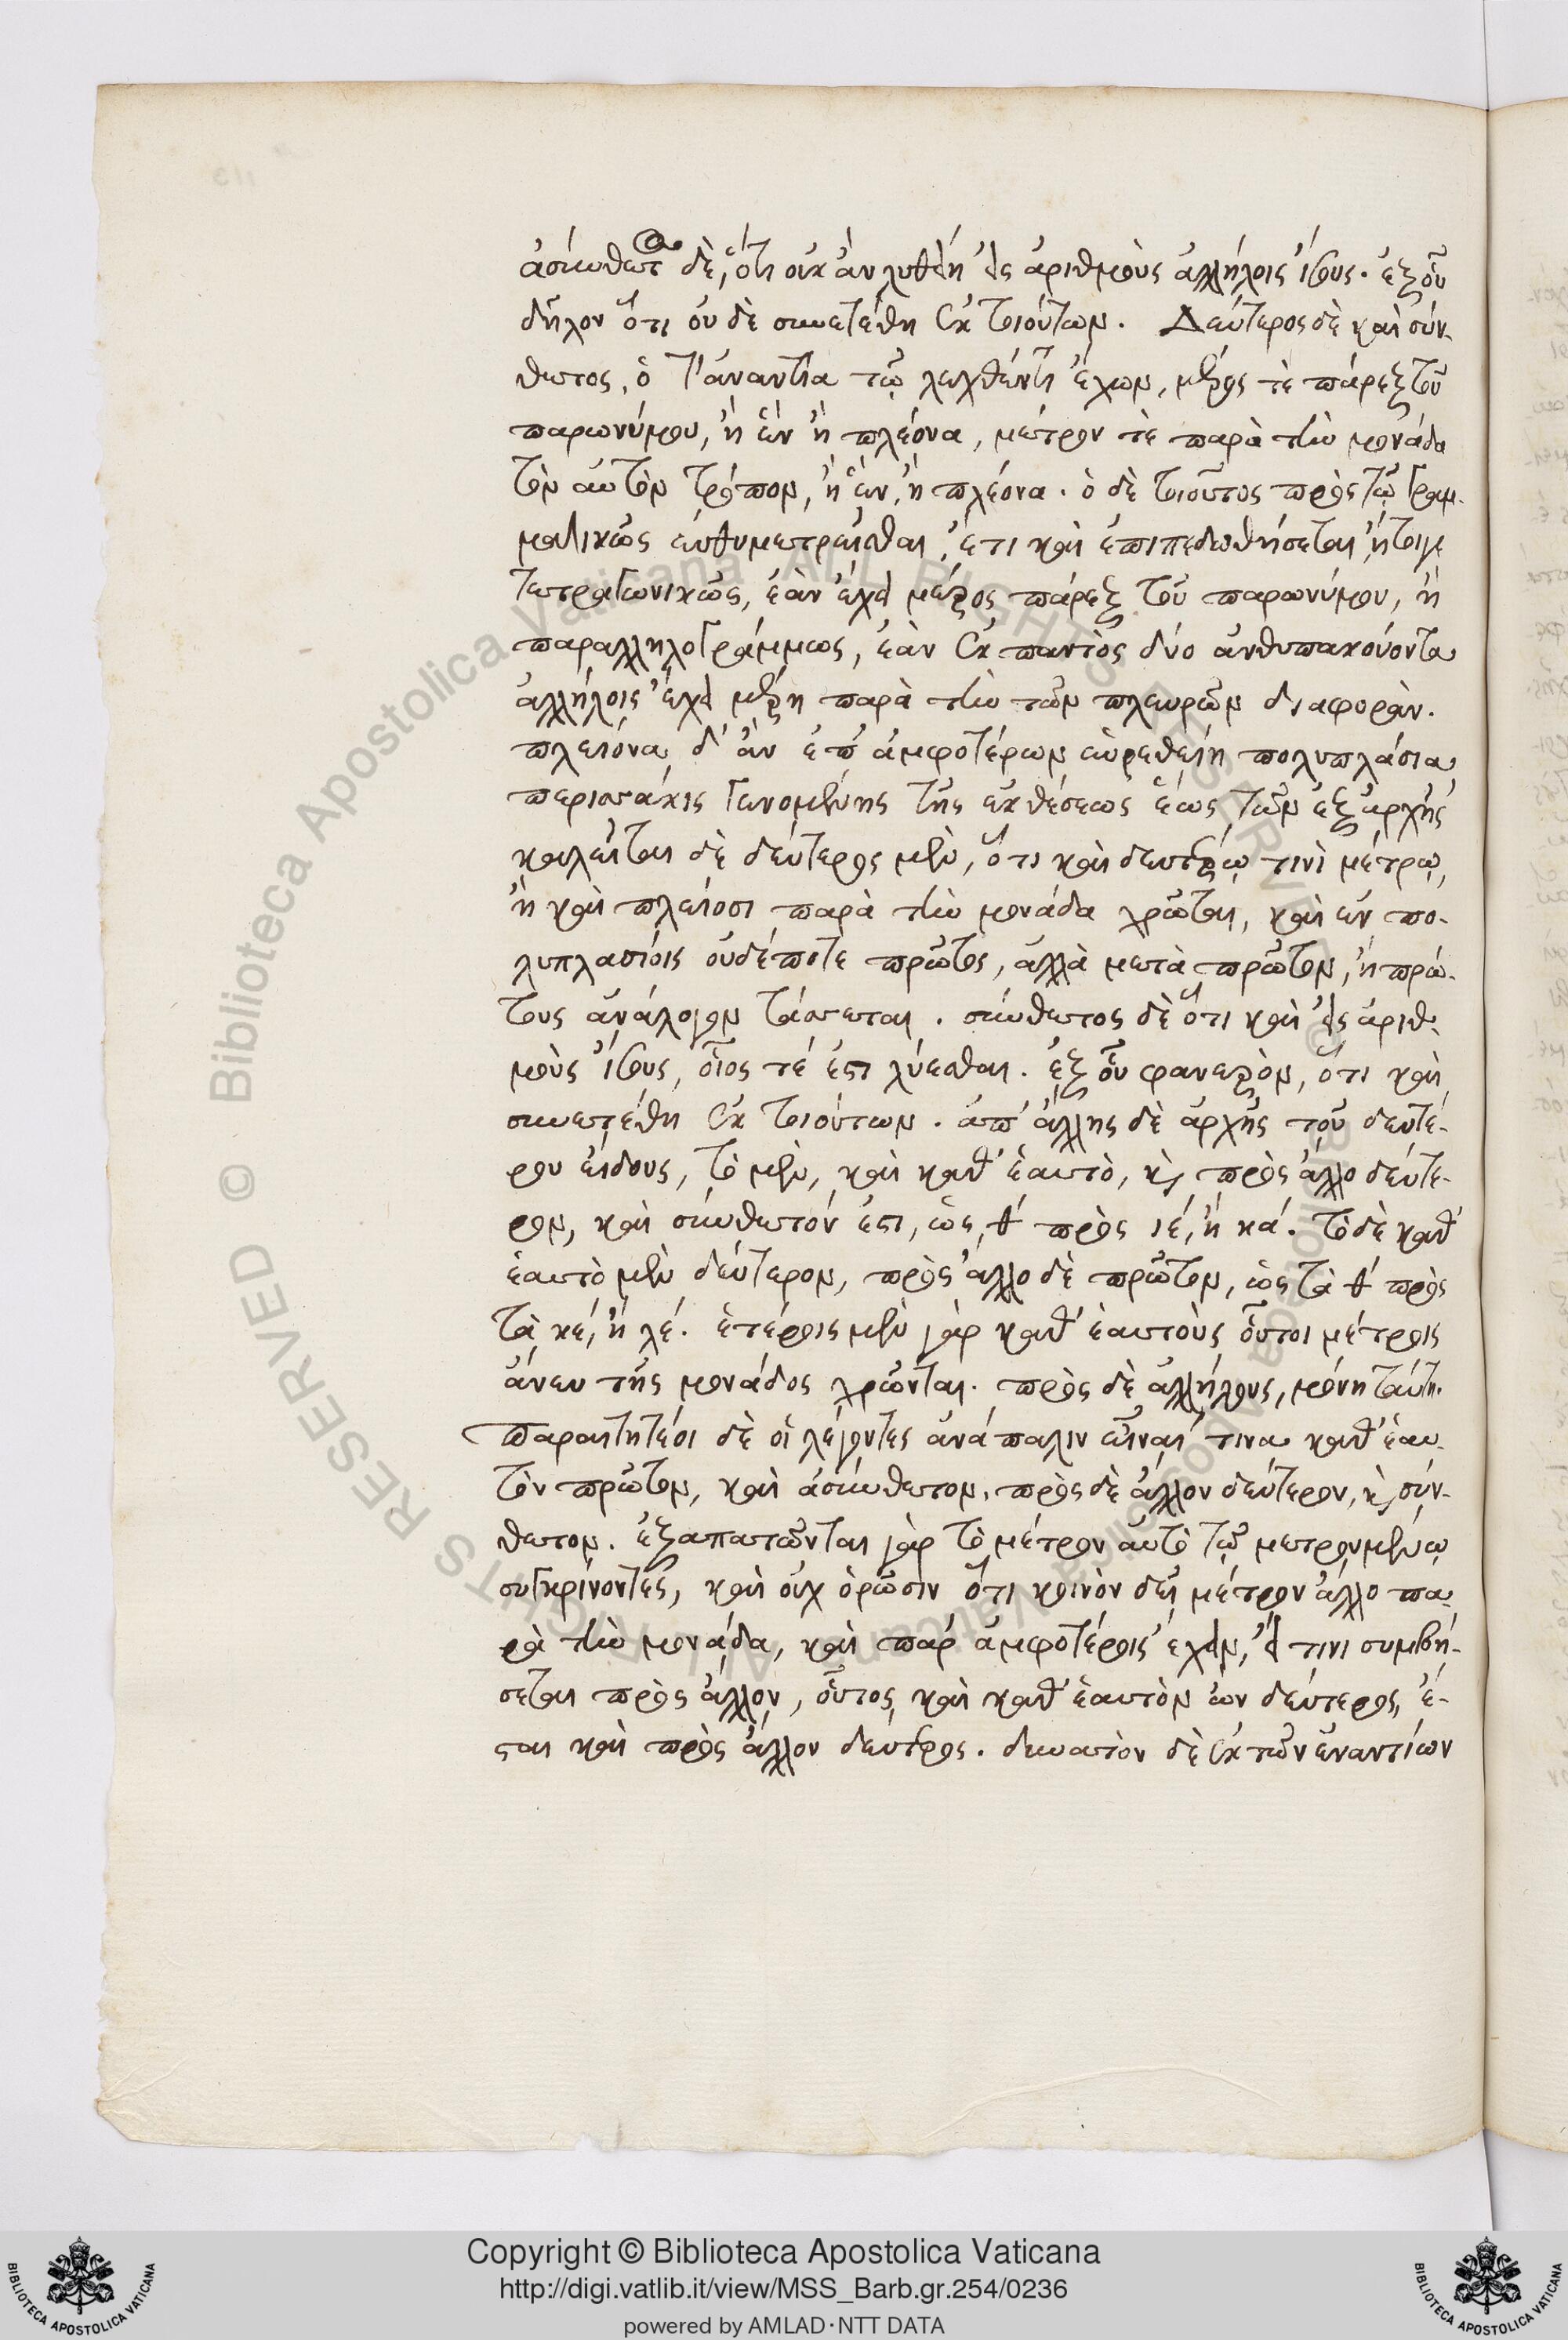 ἀσύνθετος δὲ, ὅτι οὐκ ἂν λυθείη εἰς ἀριθμοὺς ἀλλήλοις ἴσους. ἐξ οὗ
δῆλον ὅτι οὐδὲ συνετέθη ἐκ τοιούτων. Δεύτερος δὲ καὶ σύν-
θετος, ὁ τἀναντία τῷ λεχθέντι ἔχων, μέρος τὲ πάρεξ τοῦ
παρωνύμου, ἢ ἓν ἢ πλέονα, μέτρον τὲ παρὰ τὴν μονάδα
τὸν αὐτὸν τρόπον, ἢ ἓν, ἢ πλέονα. ὁ δὲ τοιοῦτος πρὸς τῷ γραμ-
ματικῶς εὐθυμετρεῖσθαι, ἔτι καὶ ἐπιπεδωθήσεται ἤτοι
τετραγωνικῶς, ἐὰν ἔχει μέρος πάρεξ τοῦ παρωνύμου, ἢ
παραλληλογράμμως, ἐὰν ἐκ παντὸς δύο ἀνθυπακούοντα
ἀλλήλοις ἔχει μέρη παρὰ τὴν τῶν πλευρῶν διαφορὰν.
πλείονα δ' ἂν ἐπ' ἀμφοτέρων εὑρεθείη πολυπλάσια
περισσάκις γενομένης τῆς ἐκθέσεως ἕως τῶν ἐξ ἀρχῆς
καλεῖται δὲ δεύτερος μὲν, ὅτι καὶ δευτέρῳ τινὶ μέτρῳ,
ἢ καὶ πλείοσι παρὰ τὴν μονάδα χρῶται, καὶ ἐν πο-
λυπλασίοις οὐδέποτε πρῶτος, ἀλλὰ μετὰ πρῶτον, ἢ πρώ-
τους ἀνάλογον τάσσεται. σύνθετος δὲ ὅτι καὶ εἰς ἀριθ-
μοὺς ἴσους, οἷός τέ ἐστι λύεσθαι. ἐξ οὗ φανερὸν, ὅτι καὶ
συνετέθη ἐκ τοιούτων. ἀπ' ἄλλης δὲ ἀρχῆς τοῦ δευτέ-
ρου εἴδους, τὸ μὲν, καὶ καθ' ἑαυτὸ, κ πρὸς ἄλλο δεύτε-
ρον, καὶ σύνθετόν ἐστι, ὡς, θ' πρὸς ιέ, ἢ κά. τὸ δὲ καθ'
ἑαυτὸ μὲν δεύτερον, πρὸς ἄλλο δὲ πρῶτον, ὡς τὰ θ' πρὸς
τὰ κέ, ἢ λέ. ἑτέροις μὲν γὰρ καθ' ἑαυτοὺς οὗτοι μέτροις
ἄνευ τῆς μονάδος χρῶνται. πρὸς δὲ ἀλλήλους, μόνῃ ταύτῃ.
Παραιτητέοι δὲ οἱ λέγοντες ἀνάπαλιν εἶναί τινα καθ' ἑαυ-
τὸν πρῶτον, καὶ ἀσύνθετον, πρὸς δὲ ἄλλον δεύτερον, κ σύν-
θετον. ἐξαπατῶνται γὰρ τὸ μέτρον αὐτὸ τῷ μετρουμένῳ
συγκρίνοντες, καὶ οὐχ ὁρῶσιν ὅτι κοινὸν δεῖ μέτρον ἄλλο πα-
ρὰ τὴν μονάδα, καὶ παρ' ἀμφοτέροις ἔχειν, εἴ τινι συμβή-
σεται πρὸς ἄλλον, οὗτος καὶ καθ' ἑαυτὸν ὢν δεύτερος, ἔ-
σται καὶ πρὸς ἄλλον δεύτερος. δυνατὸν δὲ ἐκ τῶν ἐναντίων
Copyright © Biblioteca Apostolica Vaticana
http://digi.vatlib.it/view/MSS_Barb.gr.254/0236
powered by AMLAD·NTT DATA